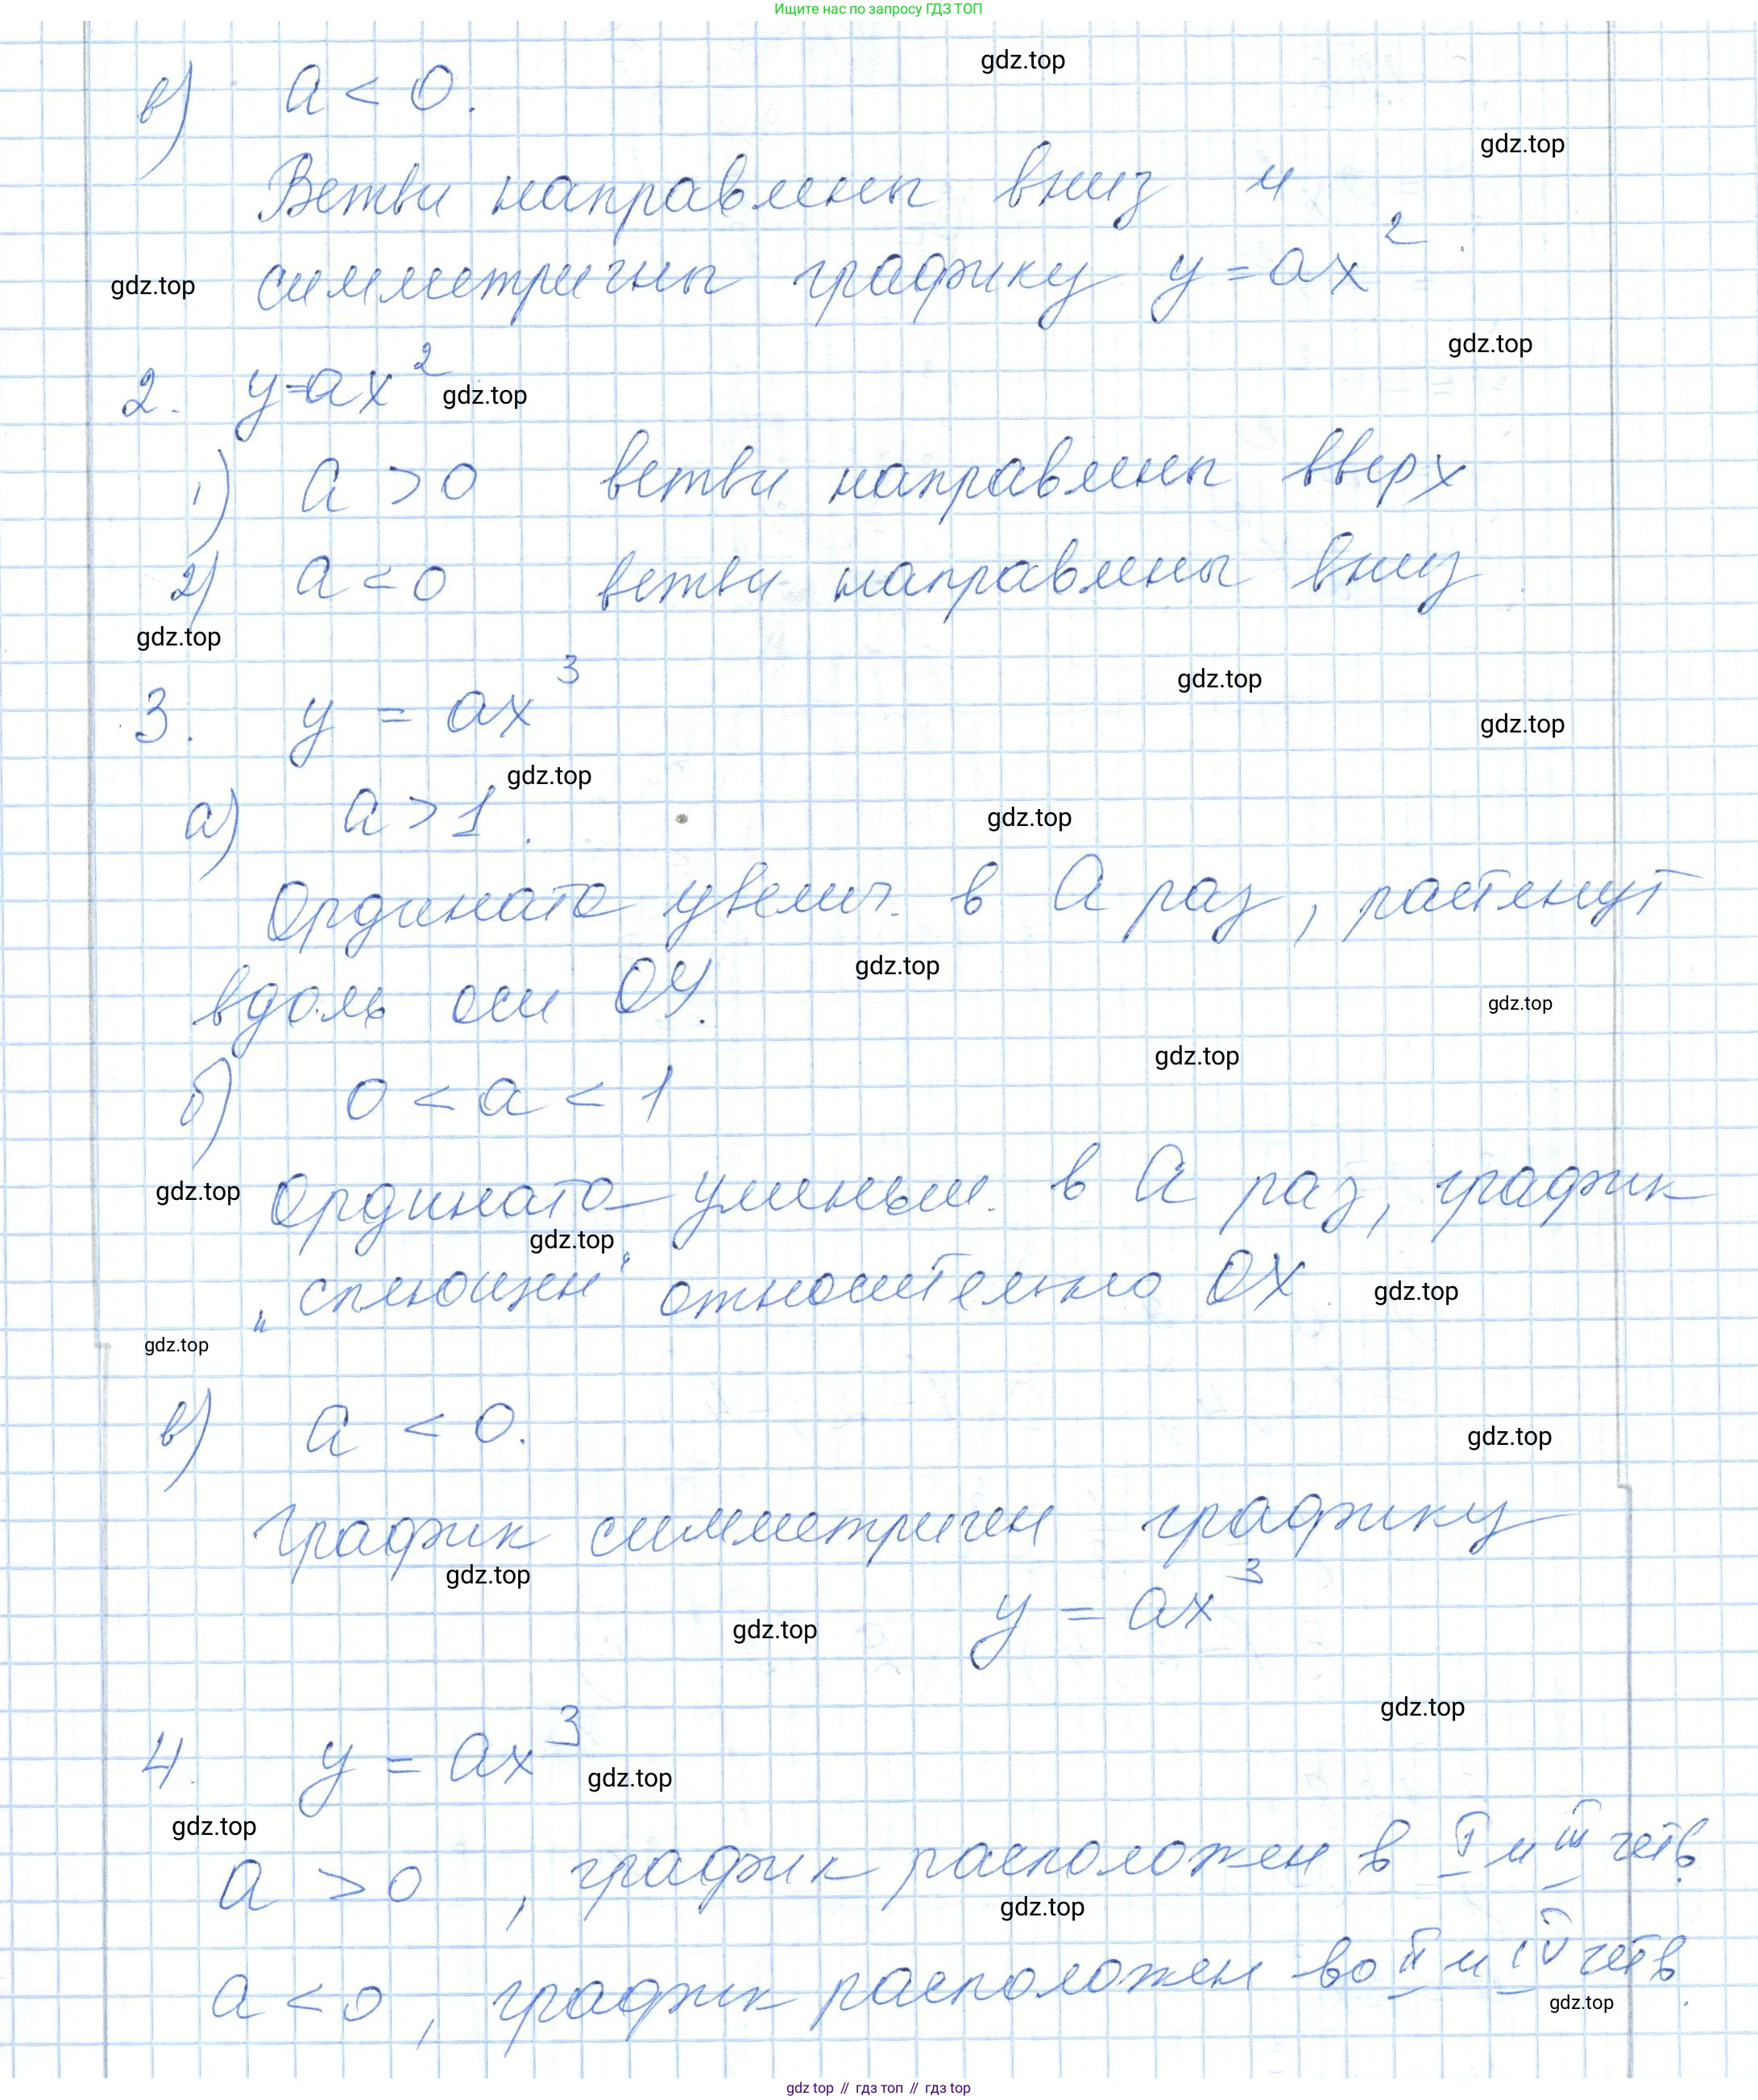 Ищите нас по запросу ГДЗ ТОП
gdz.top
в) a < 0.
gdz.top
Ветви направлены вниз и
gdz.top
симметричны графику y = ax²
gdz.top
2. y=ax²
gdz.top
1) a > 0 ветви направлены вверх
2) a < 0 ветви направлены вниз
gdz.top
3. y = ax³
gdz.top
gdz.top
gdz.top
а) a > 1.
gdz.top
Ордината увелич. в a раз, растянут
gdz.top
вдоль оси OY.
gdz.top
gdz.top
б) 0 < a < 1
gdz.top
Ордината уменьш. в a раз, график
gdz.top
„сплющен“ относительно OX
gdz.top
gdz.top
в) a < 0.
gdz.top
График симметричен графику
gdz.top
y = ax³
gdz.top
gdz.top
4. y = ax³
gdz.top
gdz.top
a > 0, график расположен в I и III четв.
gdz.top
a < 0, график расположен во II и IV четв.
gdz.top
gdz top // гдз топ // гдз top